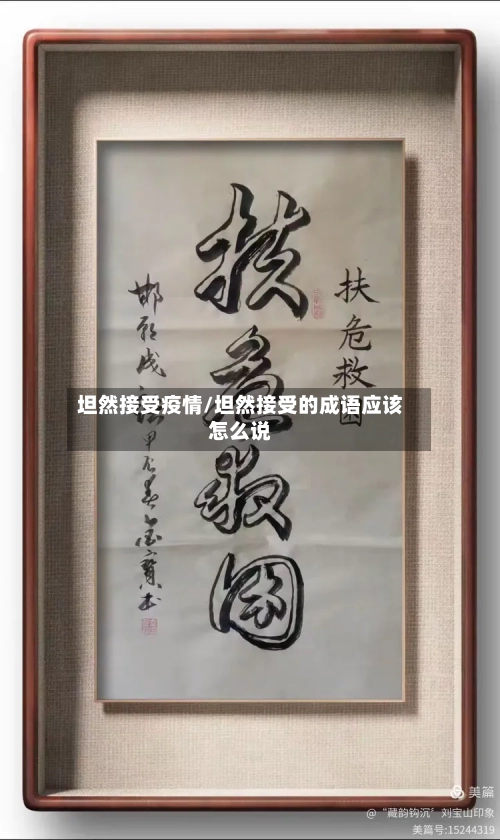 扶危救困
扶危救困
邯郸成
坦然接受疫情/坦然接受的成语应该
怎么说
美篇
@“藏韵钩沉”刘宝山印象
美篇号:15244319